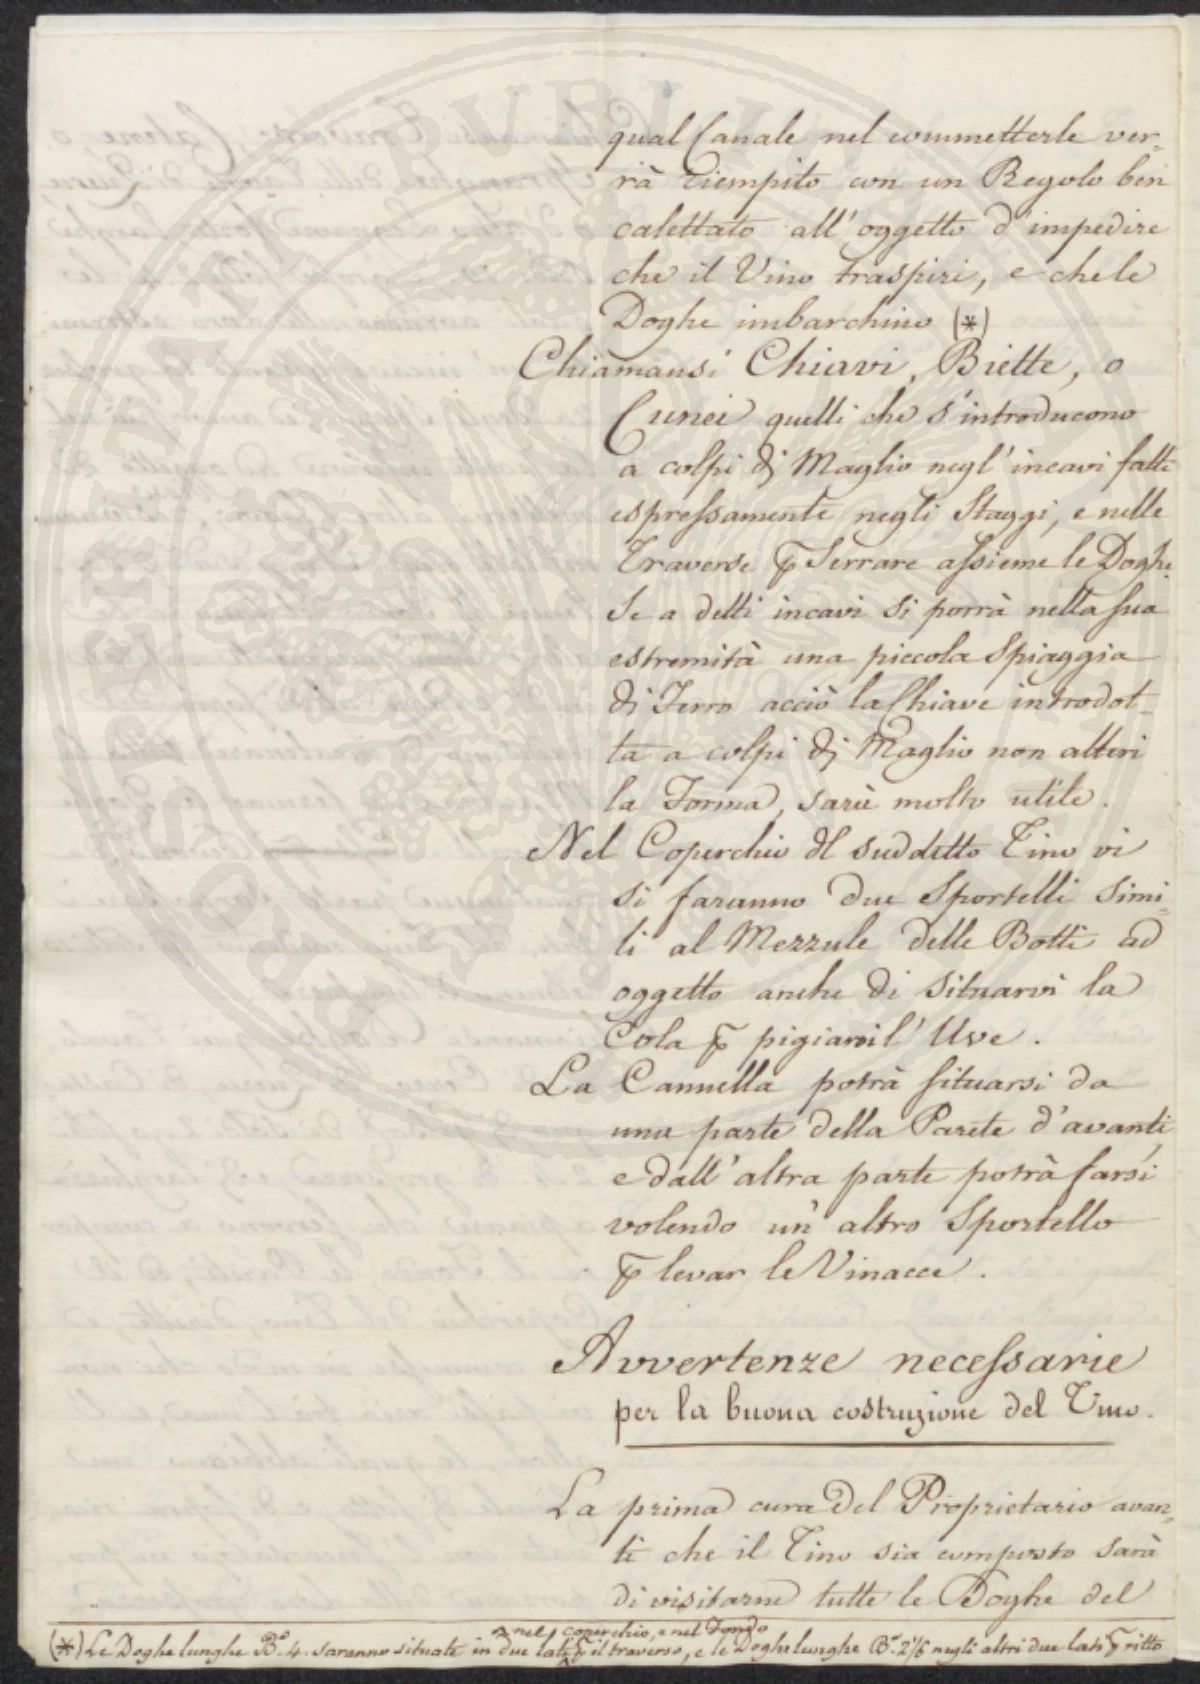 qual Canale nel commetterle ver-
rà riempito con un Regolo ben
calettato all'oggetto d'impedire
che il Vino traspiri, e che le
Doghe imbarchino (*)
Chiamansi Chiavi, Biette, o
Cunei quelli che s'introducono
a colpi di Maglio negl'incavi fatti
espressamente negli Staggi, e nelle
Traverse p Serrare assieme le Doghe.
Se a detti incavi si porrà nella sua
estremità una piccola Spiaggia
di Ferro acciò la Chiave introdot-
ta a colpi di Maglio non alteri
la Forma, sarà molto utile.
Nel Coperchio dl suddetto Tino vi
si faranno due Sportelli simi-
li al Mezzule delle Botti ad
oggetto anche di situarvi la
Cola p pigiarvi l'Uve.
La Cannella potrà situarsi da
una parte della Parete d'avanti,
e dall'altra parte potrà farsi
volendo un'altro Sportello
p levar le Vinacce.
Avvertenze necessarie
per la buona costruzione del Tino.
La prima cura del Proprietario avan-
ti che il Tino sia composto sarà
di visitarne tutte le Doghe del
nel coperchio, e nel Fondo
(*) Le Doghe lunghe Ba. 4. saranno situate in due lati p il traverso, e le Doghe lunghe Ba. 2 1/6 negli altri due lati p ritto
PROSPERITATI PUBLI